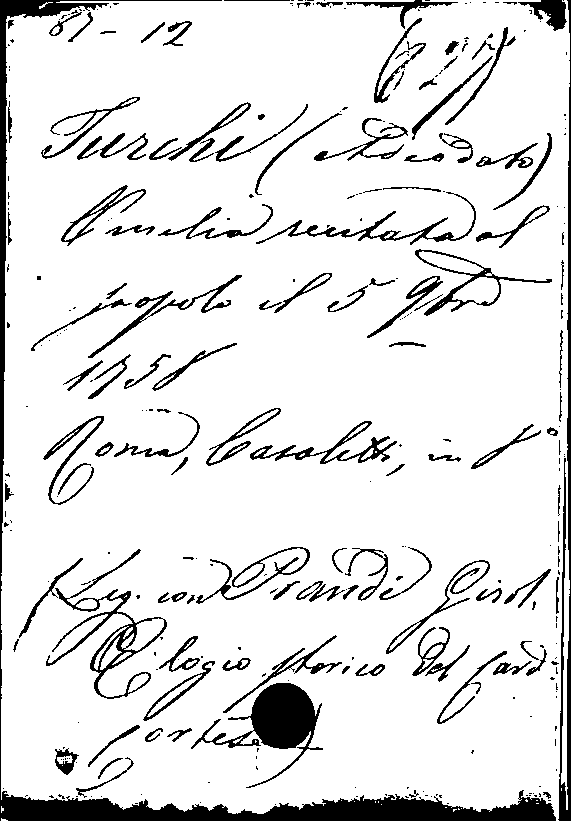 87-12
Turchi (Adeodato)
Omelia recitata al
popolo il 5 9bre
1758
Roma, Casaletti, in 8°
(Leg. con Prandi Girol.
Elogio storico del Card.
Cortese)